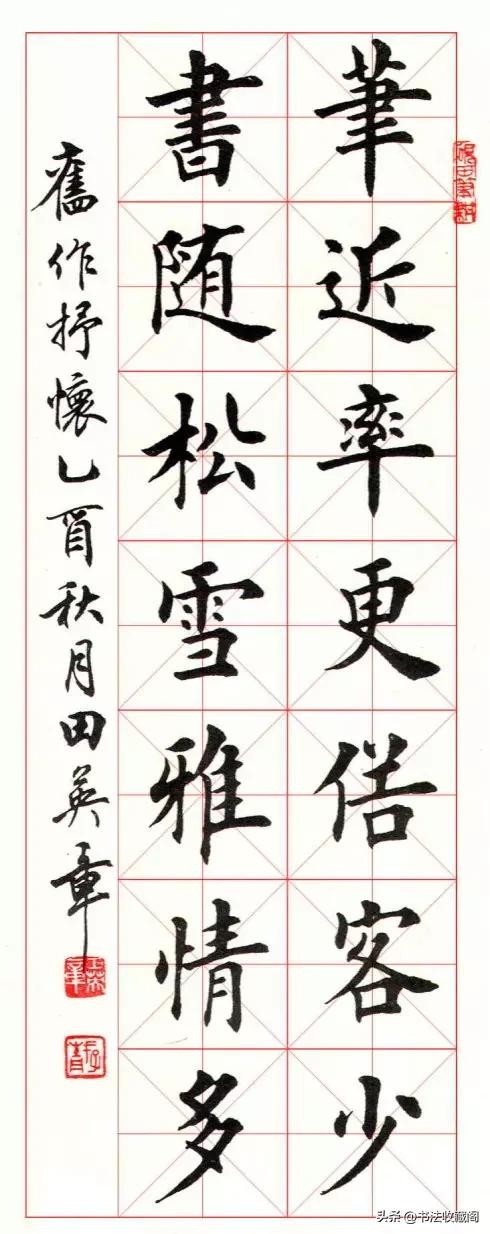 筆近率更俗客少
書随松雪雅情多
舊作抒懷乙酉秋月田英章
头条 @书法收藏阁